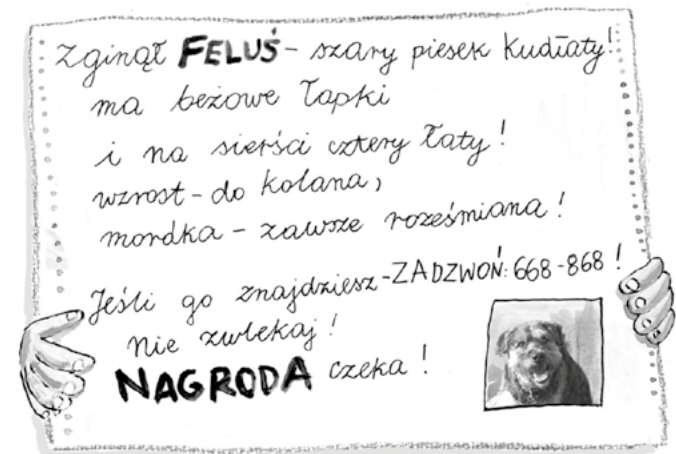 Zginął FELUŚ - szary piesek kudłaty!
ma beżowe łapki
i na sierści cztery łaty!
wzrost - do kolana,
mordka - zawsze roześmiana!
Jeśli go znajdziesz - ZADZWOŃ: 668-868!
Nie zwlekaj!
NAGRODA czeka!